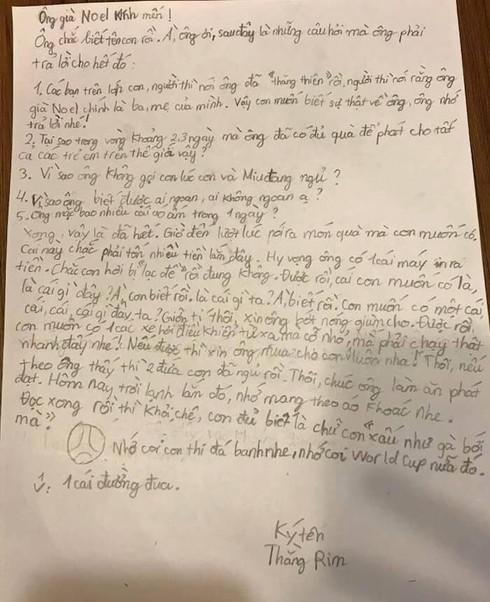 Ông già Noel kính mến!
Ông chắc biết tên con rồi. À, ông ơi, sau đây là những câu hỏi mà ông phải
trả lời cho hết đó:
1. Các bạn trên lớp con, người thì nói ông đã "thăng thiên" rồi, người thì nói rằng ông
già Noel chính là ba, mẹ của mình. Vậy con muốn biết sự thật về ông, ông nhớ
trả lời nhé!
2. Tại sao trong vòng khoảng 2,3 ngày mà ông đã có đủ quà để phát cho tất
cả các trẻ em trên thế giới vậy?
3. Vì sao ông không gọi con lúc con và Miu đang ngủ?
4. Vì sao ông biết được ai ngoan, ai không ngoan ạ?
5. Ông mặc bao nhiêu cái áo ấm trong 1 ngày?
Xong, vậy là đã hết. Giờ đến lượt lúc nói ra món quà mà con muốn có,
Cái này chắc phải tốn nhiều tiền lắm đây. Hy vọng ông có 1 cái máy in ra
tiền. Chắc con hơi bị "lạc đề" rồi đúng không. Được rồi, cái con muốn có là,
là cái gì đây? À, con biết rồi. là cái gì ta? À, biết rồi. Con muốn có một cái,
cái, cái, cái gì đây ta? Giỡn tí thôi, xin ông bớt nóng giùm cho. Được rồi,
con muốn có 1 các xe hơi điều khiển từ xa, mà cỡ nhỏ, mà phải chạy thật
nhanh đấy nhé! Nếu được thì xin ông mua cho con luôn nha! Thôi, nếu
theo ông thấy thì 2 đứa con đã ngủ rồi. Thôi, chúc ông làm ăn phát
đạt. Hôm nay trời lạnh lắm đó, nhớ mang theo áo khoác nhe.
Đọc xong rồi thì khỏi chê, con đủ biết là chữ con "xấu như gà bới
mà"
Nhớ coi con thi đá banh nhe, nhớ coi World Cup nữa đó.
1 cái đường đua.
Ký tên
Thằng Rim